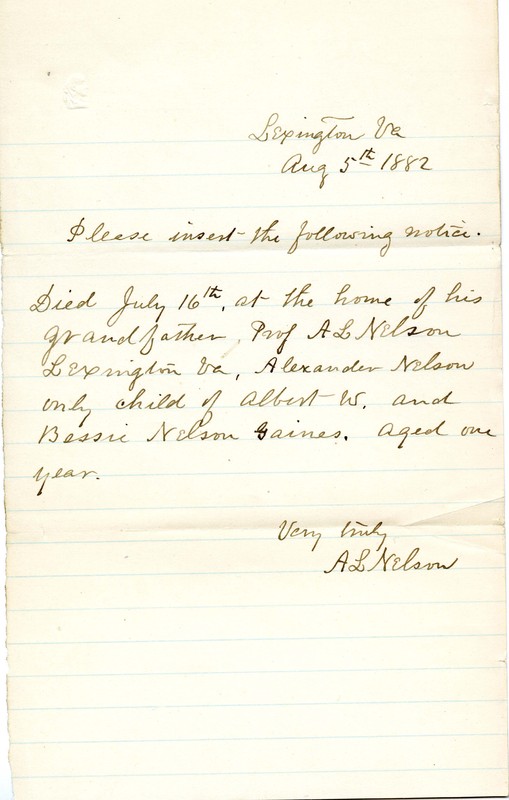 Lexington Va
Aug 5th 1882
Please insert the following notice.
Died July 16th, at the home of his
grandfather, Prof A L Nelson
Lexington Va, Alexander Nelson
only child of Albert W. and
Bessie Nelson Gaines. aged one
year.
Very truly
A L Nelson